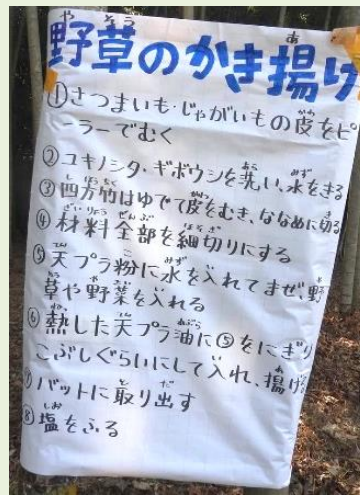 野草のかき揚げ
①さつまいも・じゃがいもの皮をピ
ーラーでむく
②ユキノシタ・ギボウシを洗い、水をきる
③四方竹はゆでて皮をむき、ななめに切る
④材料全部を細切りにする
⑤天プラ粉に水を入れてまぜ、野
草や野菜を入れる
⑥熱した天プラ油に⑤をにぎり
こぶしぐらいにして入れ、揚げる
⑦バットに取り出す
⑧塩をふる